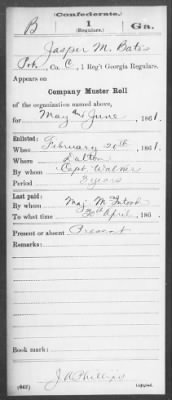 Confederate.
B 1 Ga.
(Regulars.)
Jasper M. Bates
Pvt, Co. C, 1 Reg't Georgia Regulars.
Appears on
Company Muster Roll
of the organization named above,
for May & June, 1861.
Enlisted:
When February 20th, 1861.
Where Dalton
By whom Capt. Walker
Period 3 years
Last paid:
By whom Maj. McIntosh
To what time 30th April, 186 .
Present or absent Present
Remarks:
Book mark:
J A Phillips
(642)